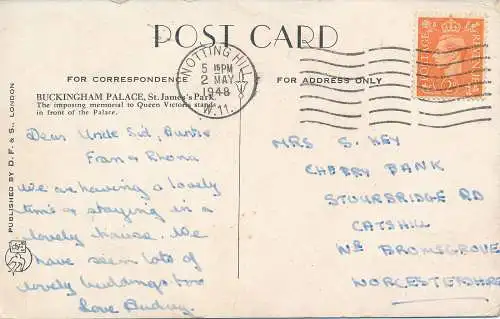 POST CARD
FOR CORRESPONDENCE
FOR ADDRESS ONLY
BUCKINGHAM PALACE, St. James's Park.
The imposing memorial to Queen Victoria stands
in front of the Palace.
PUBLISHED BY D. F. & S. LONDON
NOTTING HILL
5 15 PM
2 MAY
1948
W.11.
POSTAGE
Dear Uncle Sid, Auntie
Fran & Rhona
We are having a lovely
time & staying in a
lovely house. We
have seen lots of
lovely buildings too
Love Audrey.
MRS S. KEY
CHERRY BANK
STOURBRIDGE RD
CATSHILL
NR BROMSGROVE
WORCESTERSHIRE